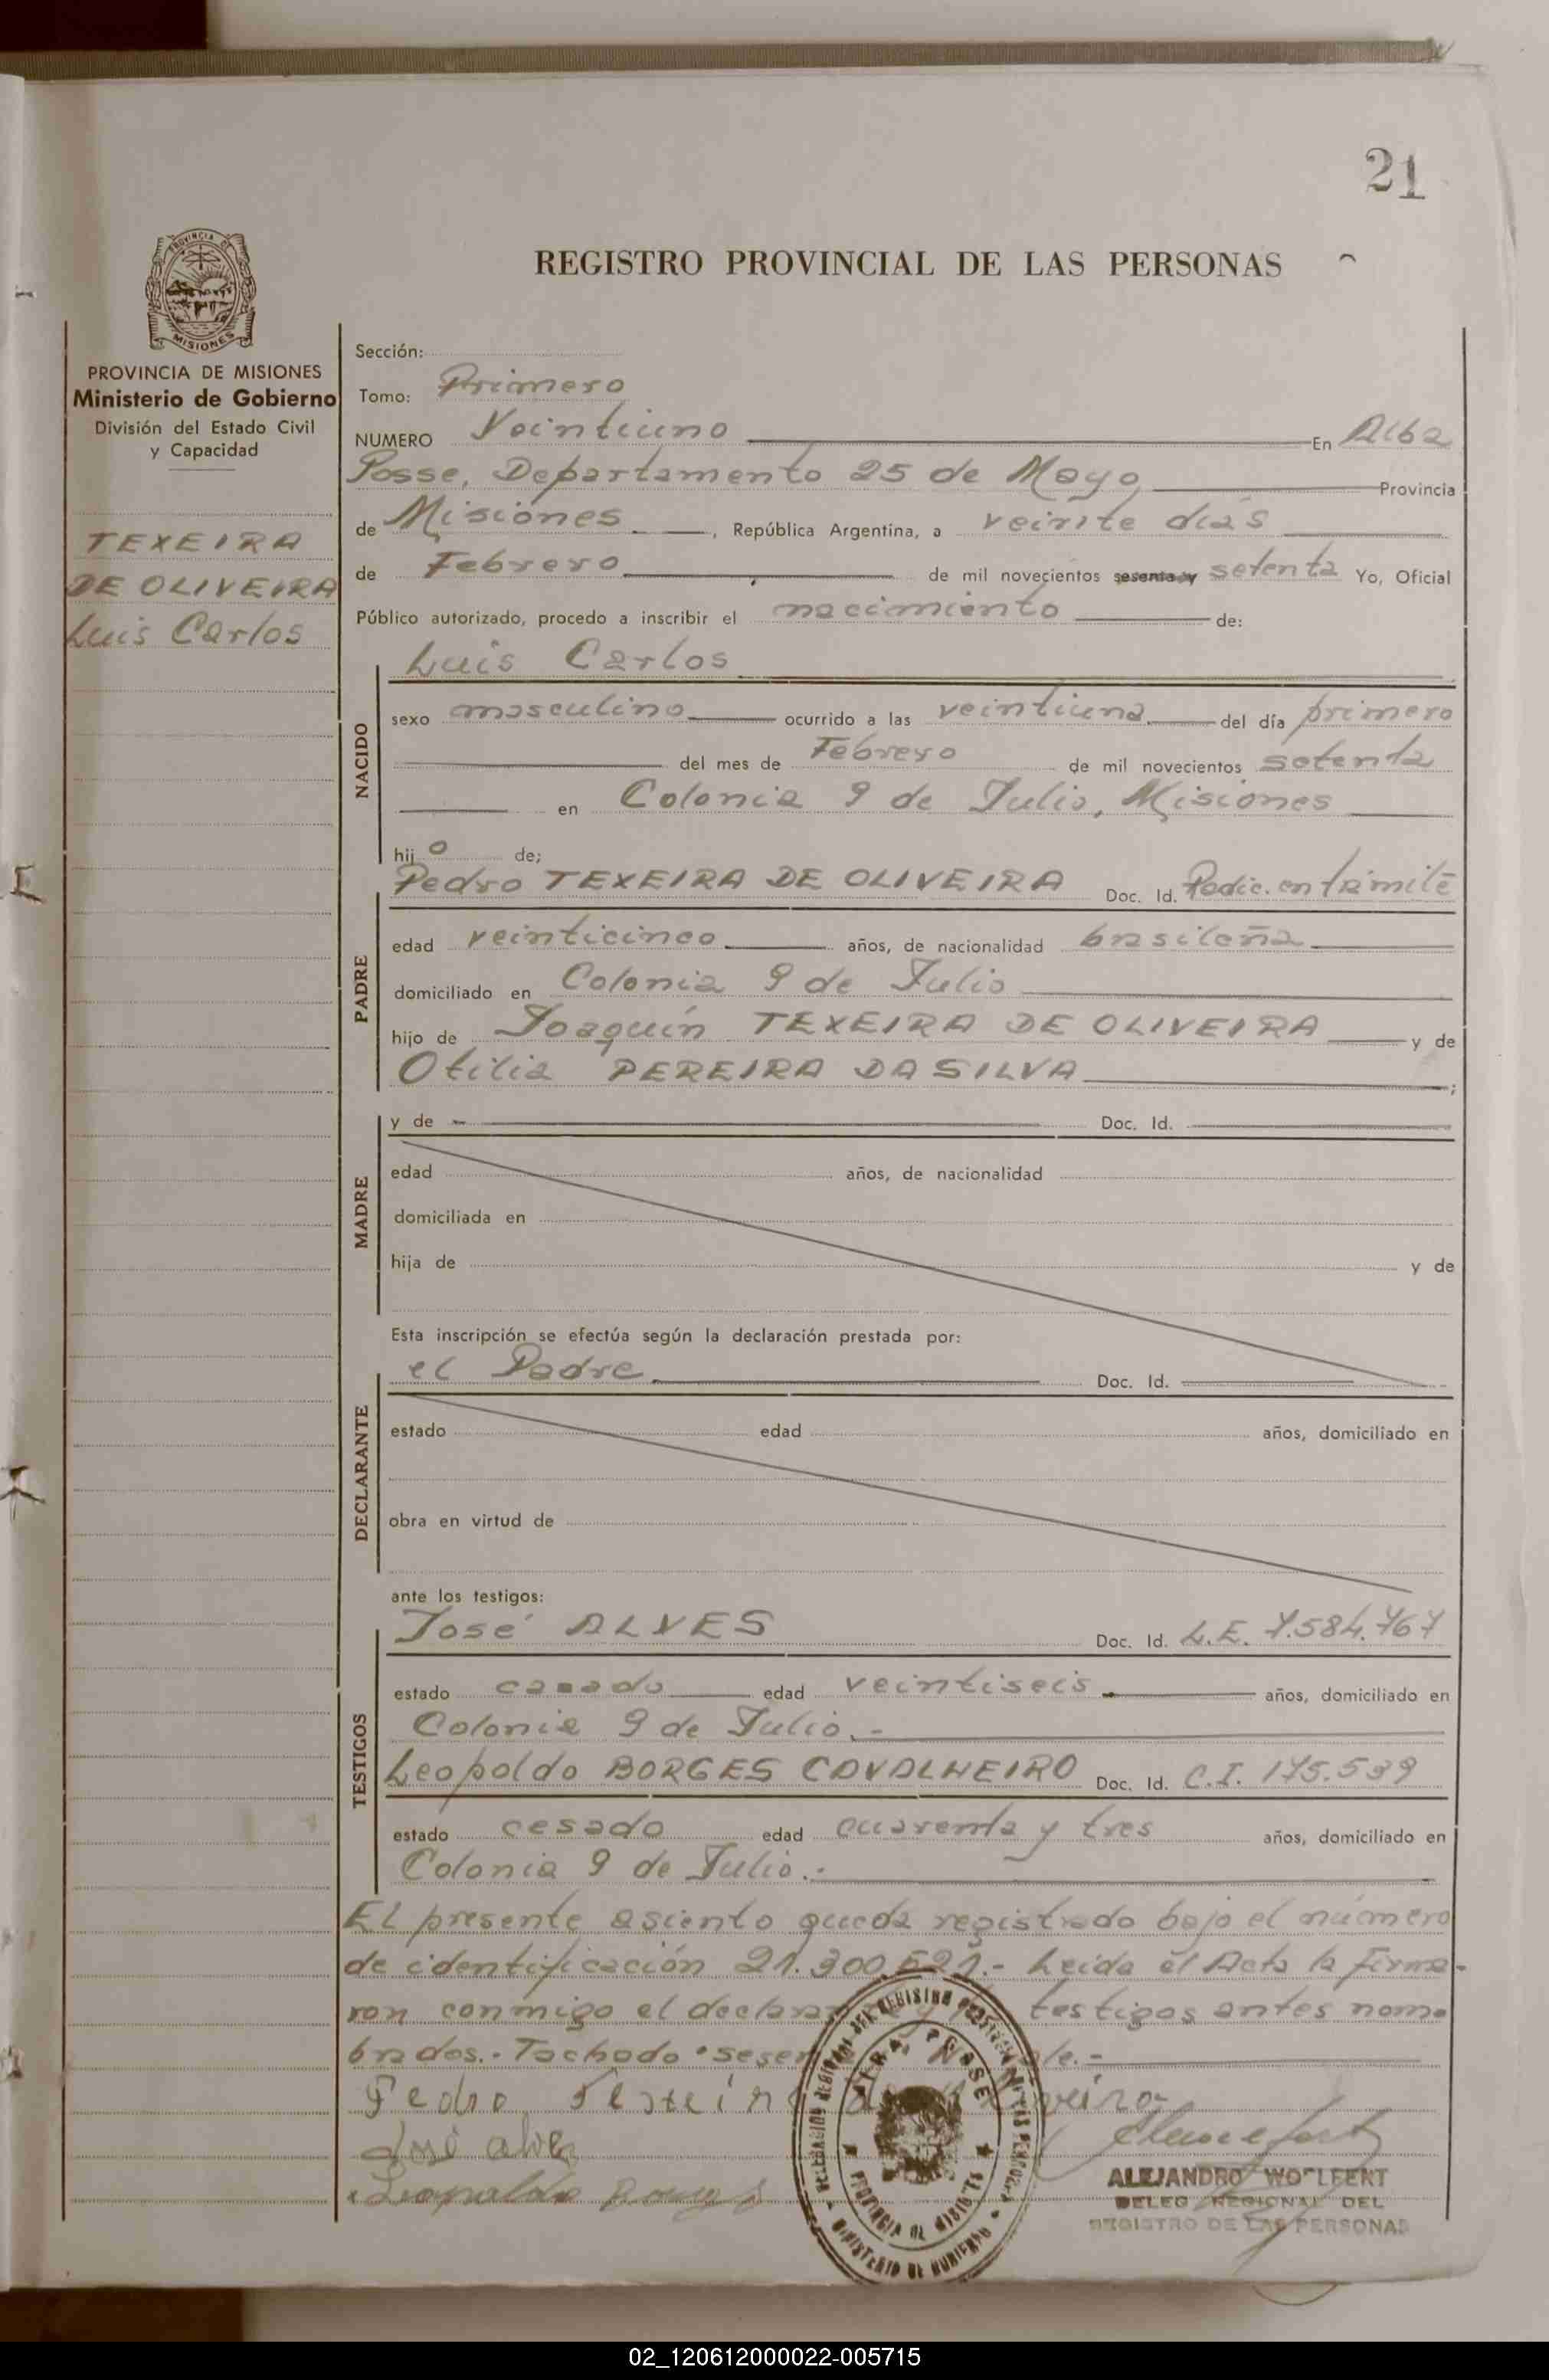 21
REGISTRO PROVINCIAL DE LAS PERSONAS
PROVINCIA DE MISIONES
Ministerio de Gobierno
División del Estado Civil
y Capacidad
TEXEIRA
DE OLIVEIRA
Luis Carlos
Sección:
Tomo: Primero
NUMERO Veintiuno En Alba
Posse, Departamento 25 de Mayo, Provincia
de Misiones, República Argentina, a veinte días
de Febrero de mil novecientos sesenta y setenta Yo, Oficial
Público autorizado, procedo a inscribir el nacimiento de:
NACIDO
Luis Carlos
sexo masculino ocurrido a las veintiuna del día primero
del mes de Febrero de mil novecientos setenta
en Colonia 9 de Julio, Misiones
hijo de;
PADRE
Pedro TEXEIRA DE OLIVEIRA Doc. Id. Radic. en trámite
edad veinticinco años, de nacionalidad brasileña
domiciliado en Colonia 9 de Julio
hijo de Joaquín TEXEIRA DE OLIVEIRA y de
Otilia PEREIRA DA SILVA ;
MADRE
y de Doc. Id.
edad años, de nacionalidad
domiciliada en
hija de y de
Esta inscripción se efectúa según la declaración prestada por:
DECLARANTE
el Padre Doc. Id.
estado edad años, domiciliado en
obra en virtud de
ante los testigos:
TESTIGOS
José ALVES Doc. Id. L.E. 7.584.767
estado casado edad veintiseis años, domiciliado en
Colonia 9 de Julio.-
Leopoldo BORGES CAVALHEIRO Doc. Id. C.I. 175.539
estado casado edad cuarenta y tres años, domiciliado en
Colonia 9 de Julio.-
El presente asiento queda registrado bajo el número
de identificación 21.300.521.- Leida el Acta la firma-
ron conmigo el testigos antes nom-
brados.- Tachado
Pedro
José Alves
Leopoldo
ALEJANDRO WOLFERT
DELEG REGIONAL DEL
REGISTRO DE LAS PERSONAS
ALBA POSSE
PROVINCIA DE MISIONES
MINISTERIO DE GOBIERNO
02_120612000022-005715